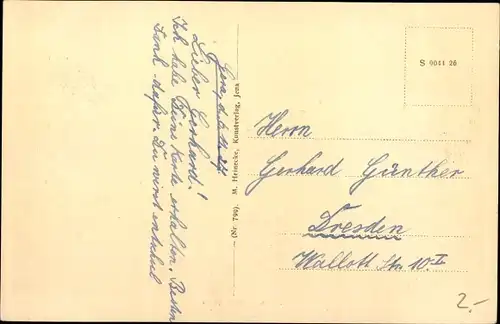 Jena, d.
Lieber Gerhard!
Ich habe Deine Karte erhalten. Besten
Dank dafür. Du wirst entschul
(Nr. 799). M. Heinecke, Kunstverlag, Jena
S 9044 26
Herrn
Gerhard Günther
Dresden
Wallott Str. 10 I.
2.-